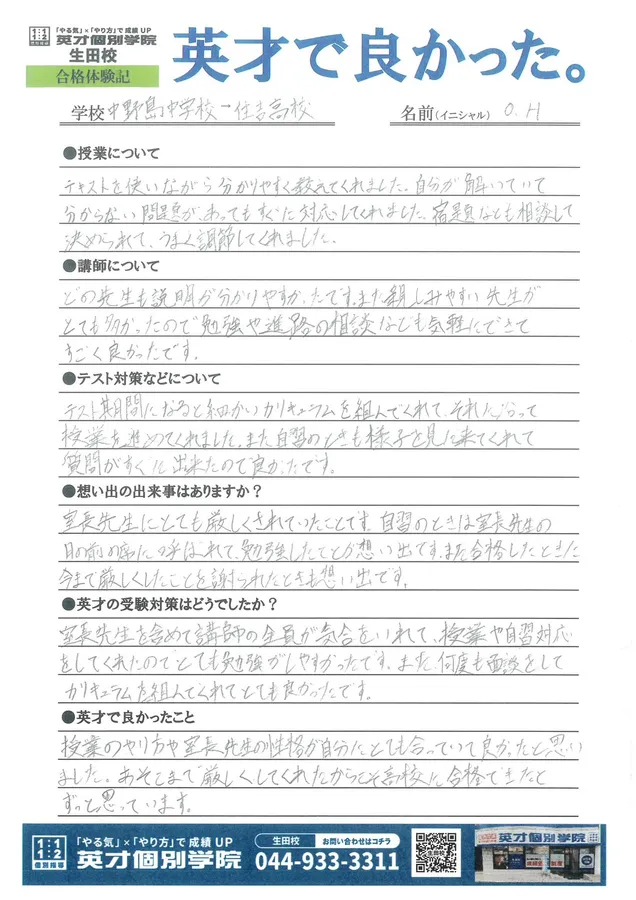 1:1
1:2
個別指導
「やる気」×「やり方」で成績UP
英才個別学院
生田校
合格体験記
英才で良かった。
学校 中野島中学校→住吉高校 名前(イニシャル) O.H
●授業について
テキストを使いながら分かりやすく教えてくれました。自分が解いていて
分からない問題があってもすぐに対応してくれました。宿題なども相談して
決められて、うまく調節してくれました。
●講師について
どの先生も説明が分かりやすかったです。また親しみやすい先生が
とても多かったので勉強や進路の相談なども気軽にできて
すごく良かったです。
●テスト対策などについて
テスト期間になると細かいカリキュラムを組んでくれて、それに沿って
授業を進めてくれました。また自習のときも様子を見に来てくれて
質問がすぐに出来たので良かったです。
●想い出の出来事はありますか？
室長先生にとても厳しくされていたことです。自習のときは室長先生の
目の前の席に呼ばれて、勉強したことが想い出です。また合格したときに
今まで厳しくしたことを謝られたときも想い出です。
●英才の受験対策はどうでしたか？
室長先生を含めて講師の全員が気合をいれて、授業や自習対応
をしてくれたのでとても勉強がしやすかったです。また、何度も面談をして
カリキュラムを組んでくれてとても良かったです。
●英才で良かったこと
授業のやり方や室長先生の性格が自分にとても合っていて良かったと思い
ました。あそこまで厳しくしてくれたからこそ高校に合格できたと
ずっと思っています。
1:1
1:2
個別指導
「やる気」×「やり方」で成績UP
英才個別学院
生田校 お問い合わせはコチラ
044-933-3311
生田校
英才個別学院